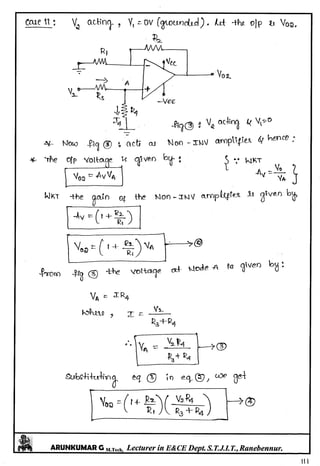 Case II : V2 acting , V1 = 0V (grounded). Let the o/p is Vo2.
R2
R1
VCC
Vo2
A
V2
R3
I4
R4
-VEE
fig ③ : V2 acting & V1=0
* Now fig ③ : acts as Non-INV amplifier & hence ;
* The o/p voltage is given by :
Vo2 = AV VA
{ ∵ WKT
AV = Vo / VA }
WKT the gain of the Non-INV amplifier is given by
AV = (1 + R2/R1)
Vo2 = (1 + R2/R1) VA → ②
From fig ③ the voltage at Node A is given by :
VA = I R4
where , I = V2 / R3+R4
∴ VA = V2 R4 / R3+R4 → ③
Substituting eq ③ in eq ②, we get
Vo2 = (1 + R2/R1) (V2 R4 / R3 + R4) → ④
ARUNKUMAR G M.Tech, Lecturer in E&CE Dept. S.T.J.I.T., Ranebennur.